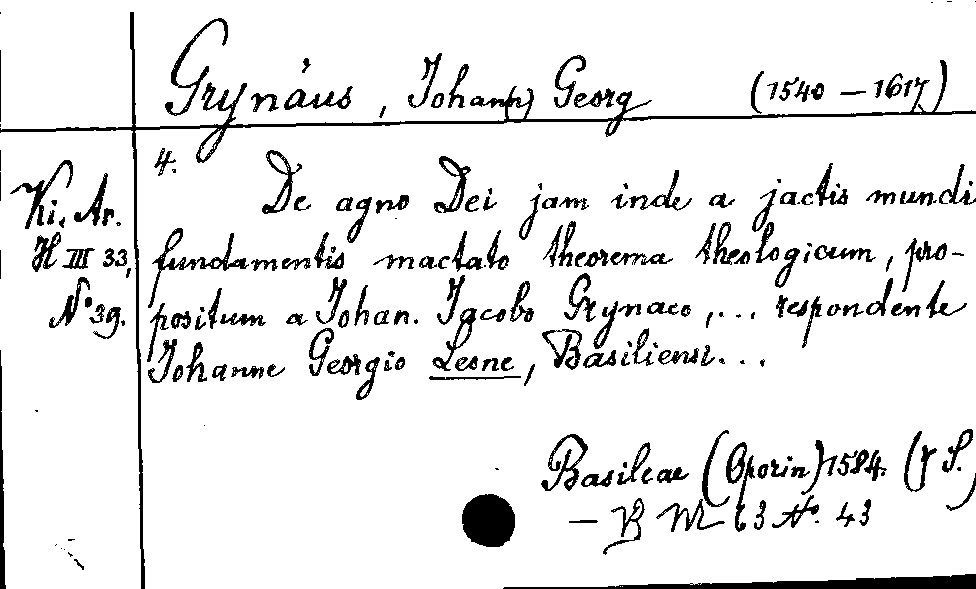 Grynäus, Johan(n) Georg (1540 – 1617)
4.
De agno Dei jam inde a jactis mundi
Ki. Ar.
H III 33,
No 39.
fundamentis mactato theorema theologicum, pro-
positum a Johan. Jacobo Grynaeo, ... respondente
Johanne Georgio Leone, Basiliensi...
Basileae (Oporin) 1584. ( S.)
– No. 43